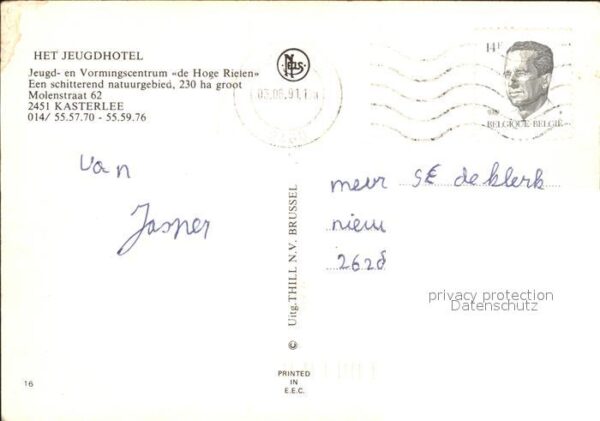 HET JEUGDHOTEL
Jeugd- en Vormingscentrum «de Hoge Rielen»
Een schitterend natuurgebied, 230 ha groot
Molenstraat 62
2451 KASTERLEE
014/ 55.57.70 - 55.59.76
NELS
14F
BELGIQUE BELGIË
van
Jasper
meur SE de klerk
nieuw
2628
privacy protection
Datenschutz
© Uitg. THILL N.V. BRUSSEL
PRINTED
IN
E.E.C.
16